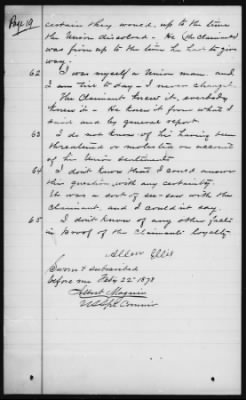 Page 19
certain they would, up to the time
the Union dissolved - He (the Claimant)
was firm up to the time he had to give
way.
62 I was myself a Union man. and
I am he to say - I never changed.
The Claimant knew it, everybody
knew it - He knew it from what I
said and by general report.
63 I do not know of his having been
threatened or molested on account
of his Union sentiments
64 I don't know that I could answer
this question with any certainty.
It was a sort of see-saw with the
Claimant, and I could not say.
65 I don't know of any other facts
in proof of the Claimants loyalty
Allen Ellis
Sworn & subscribed
before me Feby 22d 1878
Albert Maguire